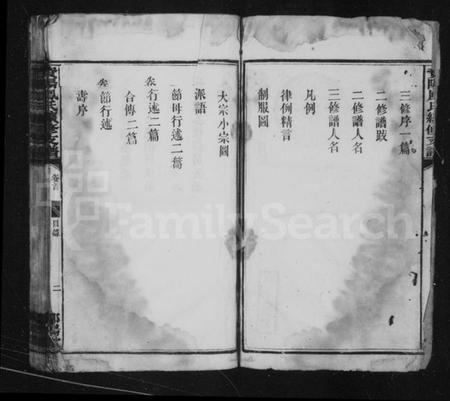 三修序一篇
二修譜跋
二修譜人名
三修譜人名
凡例
律例精言
制服圖
大宗小宗圖
派語
節母行述二篇
行述二篇
合傳二篇
節行述
壽序
卷首
目錄
二
FamilySearch